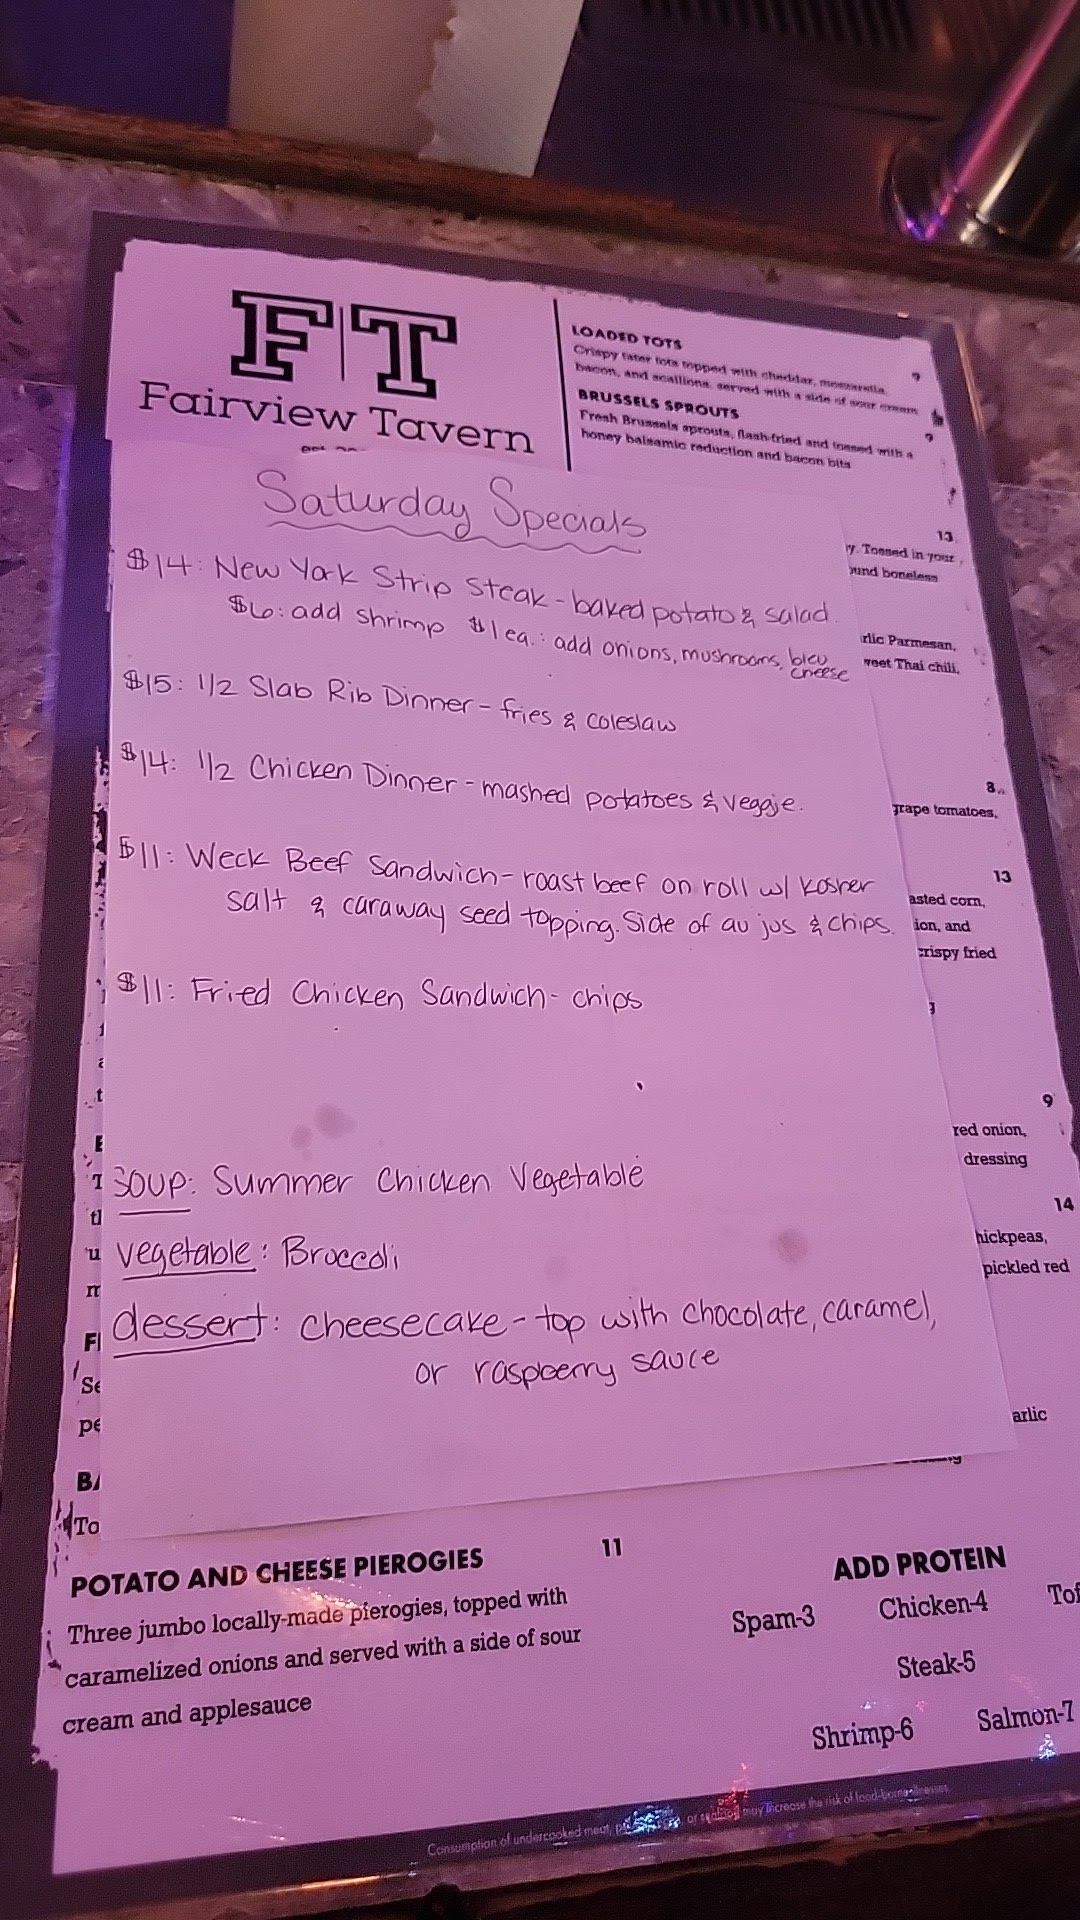 FT
Fairview Tavern
LOADED TOTS
Crispy tater tots topped with cheddar, mozzarella, 9
bacon, and scallions, served with a side of sour cream
BRUSSELS SPROUTS
Fresh Brussels sprouts, flash-fried and tossed with a 9
honey balsamic reduction and bacon bits
Saturday Specials
$14: New York Strip Steak - baked potato & salad.
$6: add shrimp $1 ea.: add onions, mushrooms, bleu
cheese
$15: 1/2 Slab Rib Dinner - fries & coleslaw
$14: 1/2 Chicken Dinner - mashed potatoes & veggie.
$11: Weck Beef Sandwich - roast beef on roll w/ kosher
salt & caraway seed topping. Side of au jus & chips.
$11: Fried Chicken Sandwich - chips
SOUP: Summer Chicken Vegetable
vegetable: Broccoli
dessert: cheesecake - top with chocolate, caramel,
or raspberry sauce
13
y. Tossed in your
ound boneless
rlic Parmesan,
weet Thai chili,
8
grape tomatoes,
13
asted corn,
ion, and
crispy fried
9
red onion,
dressing
14
hickpeas,
pickled red
arlic
POTATO AND CHEESE PIEROGIES 11
Three jumbo locally-made pierogies, topped with
caramelized onions and served with a side of sour
cream and applesauce
ADD PROTEIN
Spam-3 Chicken-4 Tof
Steak-5
Shrimp-6 Salmon-7
Consumption of undercooked meat, or seafood may increase the risk of food-borne illnesses.